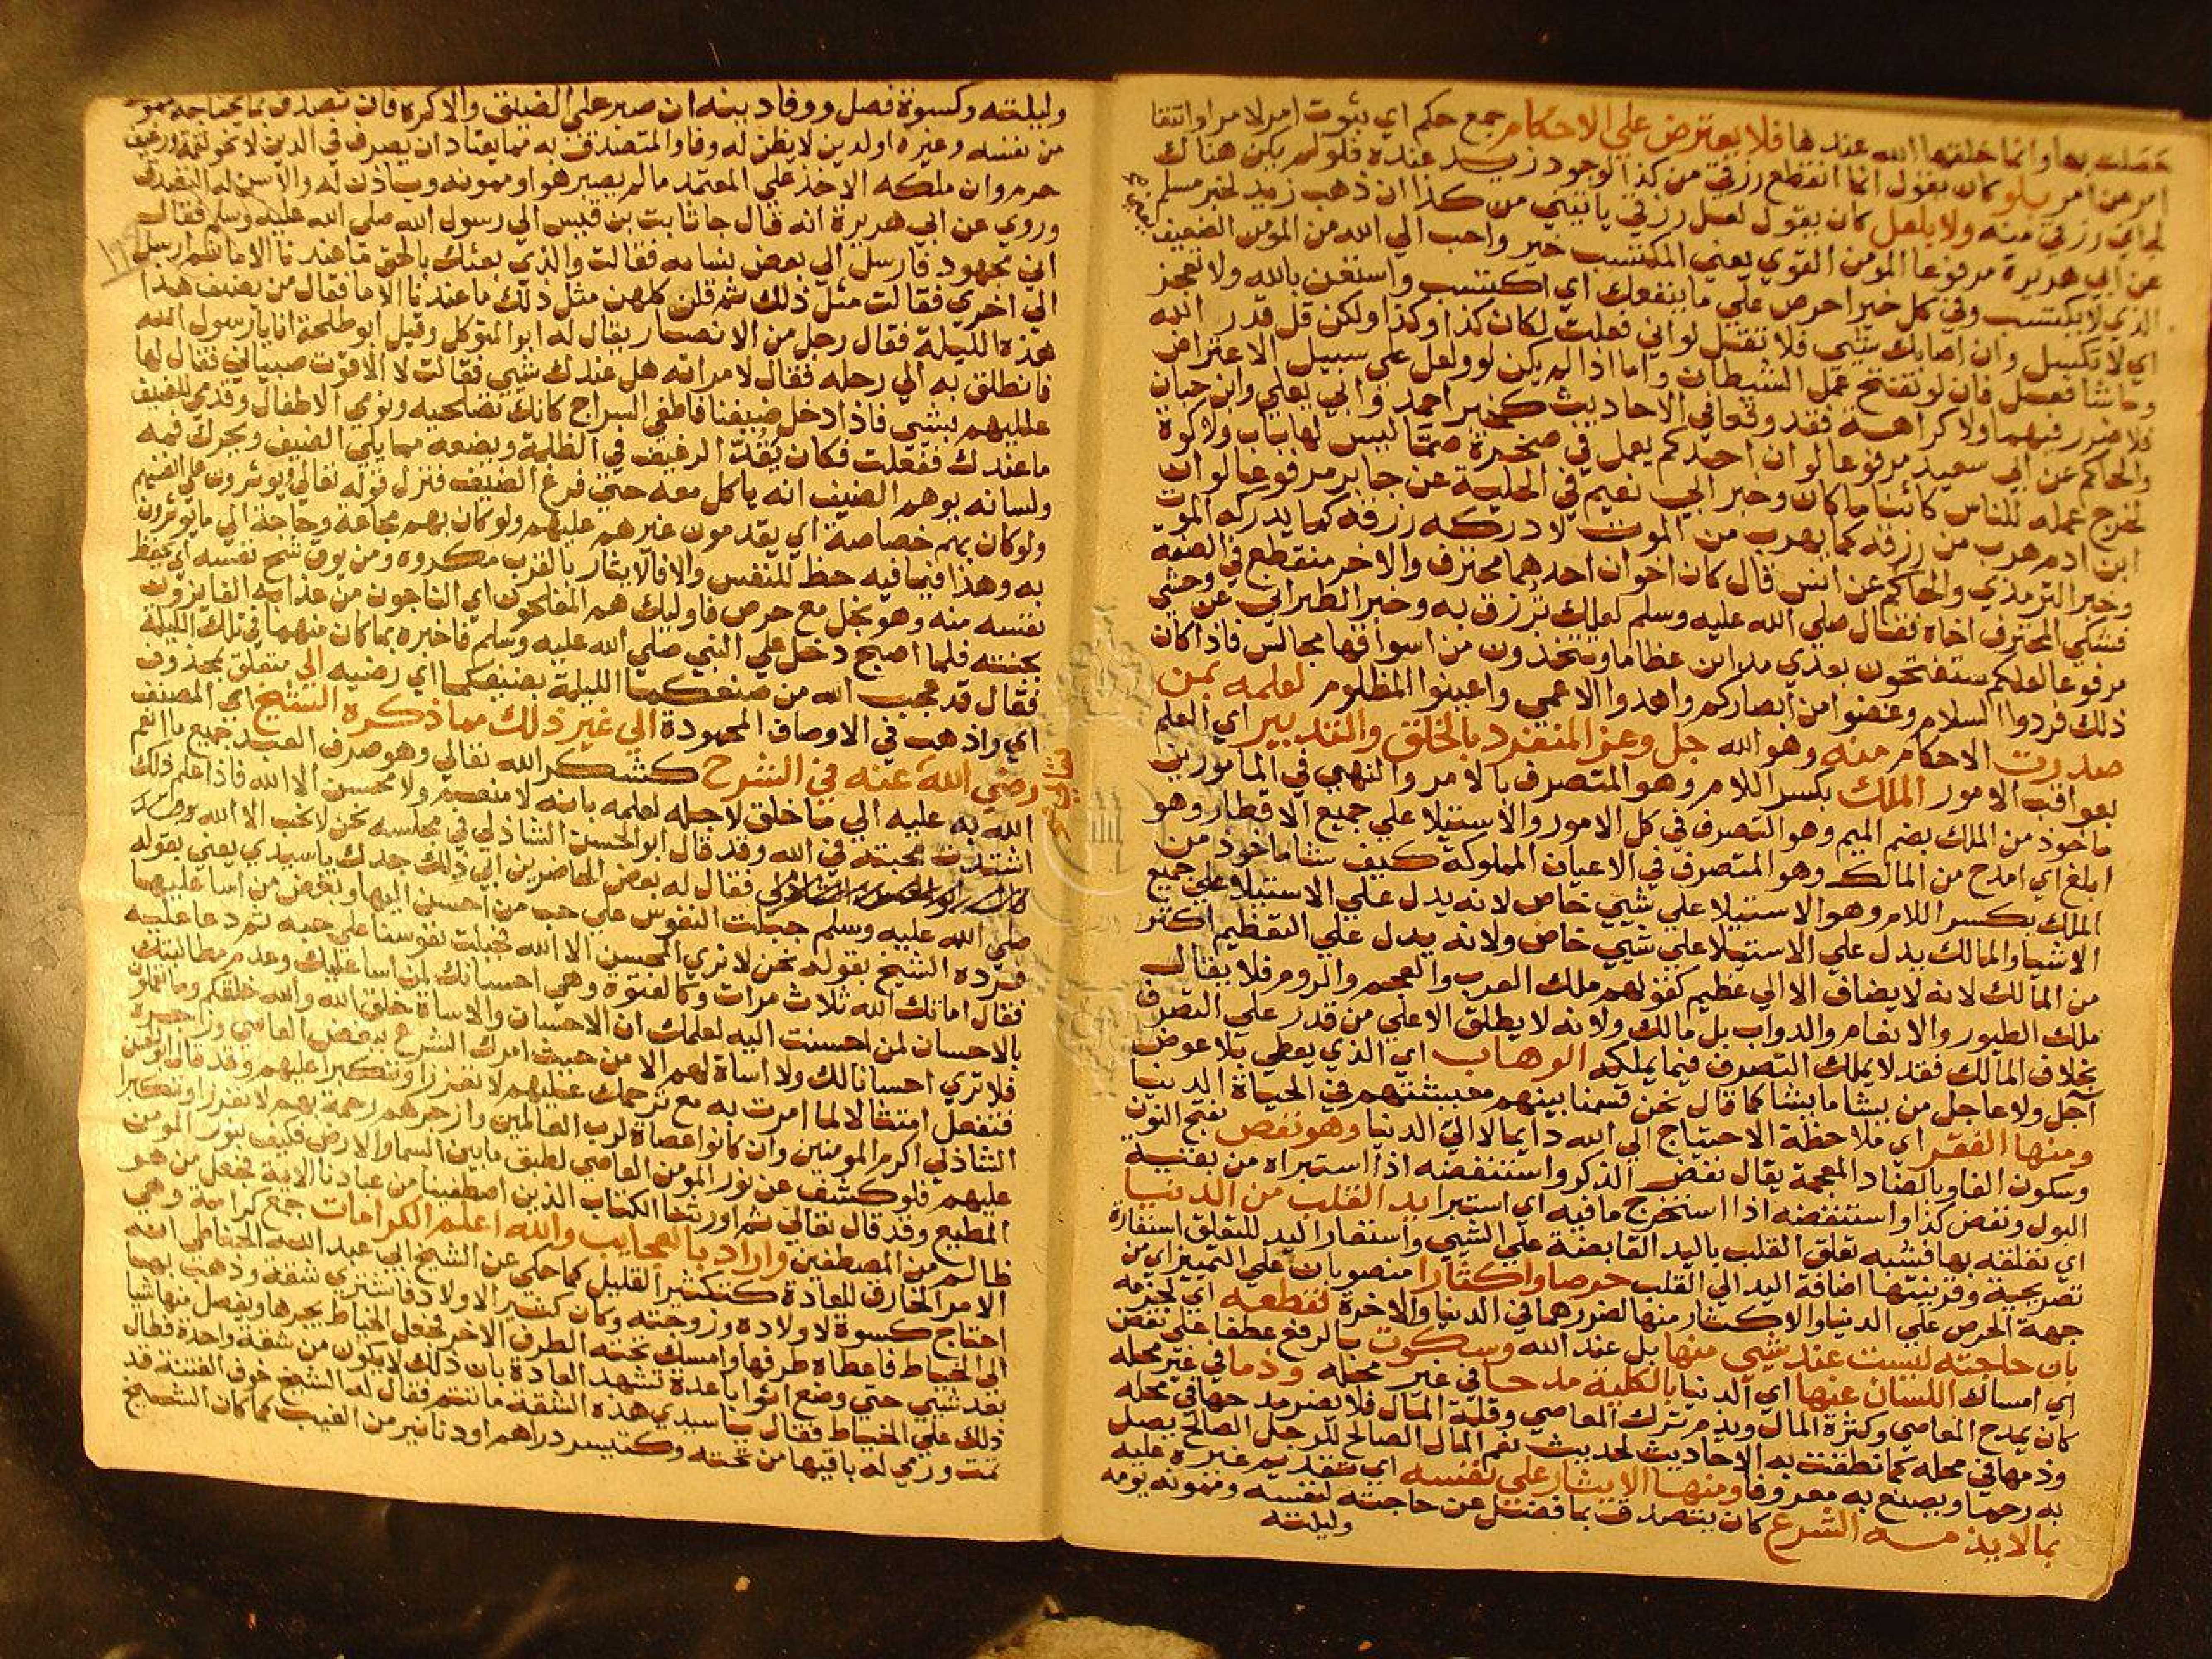 حصلت بها وانما خلقها الله عندها فلا يعترض علي الاحكام جمع حكم اي ثبوت امر لامر او انتفا
امر عن امر بلو كان يقول انما انقطع رزقي من كذا لوجود زيد عنده فلو لم يكن هناك
لجاي رزقي منه ولا بلعل كان يقول لعل رزقي ياتيني من كذا ان ذهب زيد لخبر مسلم
عن ابي هريرة مرفوعا المومن القوي يعني المكتسب خير واحب الي الله من المومن الضعيف
الذي لا يكتسب وفي كل خير احرص علي ما ينفعك اي اكتسب واستعن بالله ولا تعجز
اي لا تكسل وان اصابك شيي فلا تقل لو اني فعلت لكان كذا وكذا ولكن قل قدر الله
وما شا فعل فان لو تفتح عمل الشيطان واما اذا لم يكن لو ولعل علي سبيل الاعتراض
فلا ضرر فيهما ولا كراهة فقد وقعا في الاحاديث كخبر احمد وابي يعلي وابن حبان
والحاكم عن ابي سعيد مرفوعا لو ان احدكم يعمل في صخرة صما ليس لها باب ولا كوة
لخرج عمله للناس كائنا ما كان وخبر ابي نعيم في الحلية عن جابر مرفوعا لو ان
ابن ادم هرب من رزقه كما يهرب من الموت لادركه رزقه كما يدركه الموت
وخبر الترمذي والحاكم عن انس قال كان اخوان احدهما محترف والاخر منقطع في الصفة
فشكي المحترف اخاه فقال صلي الله عليه وسلم لعلك ترزق به وخبر الطبراني عن وحشي
مرفوعا لعلكم ستفتحون بعدي مداين عظاما وتتخذون من اسواقها مجالس فاذا كان
ذلك فردوا السلام وغضوا من ابصاركم واهدوا الاعمي واعينوا المظلوم لعلمه بمن
صدرت الاحكام منه وهو الله جل وعز المنفرد بالخلق والتدبير اي العلم
بعواقب الامور الملك بكسر اللام وهو المتصرف بالامر والنهي في المامورين
ماخوذ من الملك بضم الميم وهو التصرف في كل الامور والاستيلا علي جميع الاقطار وهو
ابلغ اي امدح من المالك وهو المتصرف في الاعيان المملوكة كيف شا ماخوذ من
الملك بكسر اللام وهو الاستيلا علي شيي خاص لانه يدل علي الاستيلا علي جميع
الاشيا والمالك يدل علي الاستيلا علي شيي خاص ولانه يدل علي التعظيم اكثر
من المالك لانه لا يضاف الا الي عظيم كقولهم ملك العرب والعجم والروم فلا يقال
ملك الطيور والانعام والدواب بل مالك ولانه لا يطلق الا علي من قدر علي التصرف
بخلاف المالك فقد لا يملك التصرف فيما يملكه الوهاب اي الذي يعطي بلا عوض
آجل ولا عاجل من يشا ما يشا كما قال نحن قسمنا بينهم معيشتهم في الحياة الدنيا
ومنها الفقر اي ملاحظة الاحتياج الي الله دايما لا الي الدنيا وهو نفض بفتح النون
وسكون الفا وبالضاد المعجمة يقال نفض الذكر واستنفضه اذا استبراه من بقية
البول ونفض كذا واستنفضه اذا استخرج ما فيه اي استبرا يد القلب من الدنيا
اي تعلقه بها فشبه تعلق القلب باليد القابضة علي الشيي واستعار اليد للتعلق استعارة
تصريحية وقرينتها اضافة اليد الي القلب حرصا واكثارا منصوبان علي التمييز اي من
جهة الحرص علي الدنيا والاكثار منها لضررهما في الدنيا والاخرة لقطعه اي لجزمه
بان حاجته ليست عند شيي منها بل عند الله وسكوت بالرفع عطفا علي نفض
اي امساك اللسان عنها اي الدنيا بالكلية مدحا في غير محله وذما في غير محله
كان يمدح المعاصي وكثرة المال ويذم ترك المعاصي وقلة المال فلا يضر مدحها في محله
وذمها في محله كما نطقت به الاحاديث لحديث نعم المال الصالح للرجل الصالح يصل
به رحما ويصنع به معروفا ومنها الايثار علي نفسه اي تقديم غيره عليه
بما لا يذمه الشرع كان يتصدق بما فضل عن حاجته لنفسه وممونه يومه
وليلته
وليلته وكسوة فصل ووفا دينه ان صبر علي الضيق والا كره فان تصدق بما يحتاجه ممونه
من نفسه وغيره او لدين لا يظن له وفا والمتصدق به مما يعتاد ان يصرف في الدين لا نحو لقمة ورغيف
حرم وان ملكه الاخذ علي المعتمد ما لم يصبر هو او ممونه وياذن له والا سن له التصدق
وروي عن ابي هريرة انه قال جا ثابت بن قيس الي رسول الله صلي الله عليه وسلم فقال
اني مجهود فارسل الي بعض نسايه فقالت والذي بعثك بالحق ما عندنا الا ما ثم ارسل
الي اخري فقالت مثل ذلك ثم قلن كلهن مثل ذلك ما عندنا الا ما فقال من يضيف هذا
هذه الليلة فقال رجل من الانصار يقال له ابو المتوكل وقيل ابو طلحة انا يا رسول الله
فانطلق به الي رحله فقال لامراته هل عندك شيي فقالت لا الا قوت صبياني فقال لها
علليهم بشيي فاذا دخل ضيفنا فاطفي السراج كانك تصلحيه ونومي الاطفال وقدمي للضيف
ما عندك ففعلت فكان يفت الرغيف في الظلمة ويضعه مما يلي الضيف ويحرك فمه
ولسانه يوهم الضيف انه ياكل معه حتي فرغ الضيف فنزل قوله تعالي ويوثرون علي انفسهم
ولو كان بهم خصاصة اي يقدمون غيرهم عليهم ولو كان بهم مجاعة وحاجة الي ما يوثرون
به وهذا فيما فيه حظ للنفس والا فالايثار بالقرب مكروه ومن يوق شح نفسه اي يحفظ
نفسه منه وهو بخل مع حرص فاوليك هم المفلحون اي الناجون من عذابه الفايزون
بجنته فلما اصبح دخل علي النبي صلي الله عليه وسلم فاخبره بما كان منهما في تلك الليلة
فقال قد عجب الله من صنعكما الليلة بضيفكما اي رضيه الي متعلق بمحذوف
اي واذهب في الاوصاف المحمودة الي غير ذلك مما ذكره الشيخ اي المصنف
رضي الله عنه في الشرح كشكر الله تعالي وهو صرف العبد جميع ما انعم
الله به عليه الي ما خلق لاجله لعلمه بانه لا منعم ولا محسن الا الله فاذا علم ذلك
اشتدت محبته في الله وقد قال ابو الحسن الشاذلي في مجلسه نحن لا نحب الا الله
فقال له بعض الحاضرين ابي ذلك جدك يا سيدي يعني بقوله
صلي الله عليه وسلم جبلت النفوس علي حب من احسن اليها وبغض من اسا عليها
فرده الشيخ بقوله نحن لا نري المحسن الا الله فجبلت نفوسنا علي حبه ثم دعا عليه
فقال اماتك الله ثلاث مرات وكالفتوة وهي احسانك لمن اسا عليك وعدم مطالبتك
بالاحسان لمن احسنت اليه لعلمك ان الاحسان والاساة خلق الله والله خلقكم وما تعملون
فلا تري احسانا لك ولا اساة لهم الا من حيث امرك الشرع ببغض العاصي وزاجره
فتفعل امتثالا لما امرت به مع ترحمك عليهم لا تعززا وتكبرا عليهم وقد قال ابو الحسن
الشاذلي اكرم المومنين وان كانوا عصاة لرب العالمين وازجرهم رحمة بهم لا تعززا وتكبرا
عليهم فلو كشف عن نور المومن العاصي لطبق ما بين السما والارض فكيف بنور المومن
المطيع وقد قال تعالي ثم اورثنا الكتاب الذين اصطفينا من عبادنا الاية فجعل من هو
ظالم من المصطفين واراد بالعجايب والله اعلم الكرامات جمع كرامة وهي
الامر الخارق للعادة كتكثير القليل كما حكي عن الشيخ ابي عبد الله الخياطي انه
احتاج كسوة لاولاده وزوجته وكان كثير الاولاد فاشتري شقة وذهب بها
الي الخياط فاعطاه طرفها وامسك تحته الطرف الاخر فجعل الخياط يجرها ويفصل منها شيا
بعد شيي حتي وضع اثوابا عدة تشهد العادة بان ذلك لا يكون من شقة واحدة فطال
ذلك علي الخياط فقال يا سيدي هذه الشقة ما تتم فقال له الشيخ خوف الفتنة قد
تمت ورمي له باقيها من تحته وكتيسر دراهم او دنانير من الغيب كما كان الشيخ